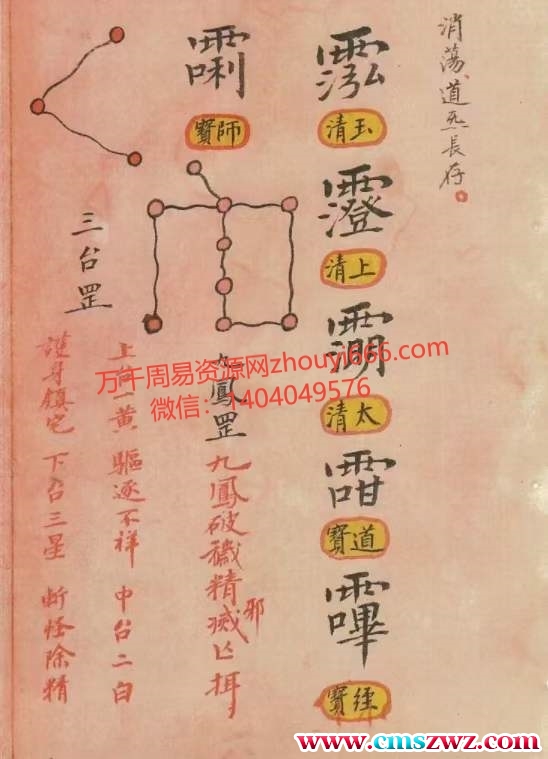 消蕩道炁長存。
玉清
上清
太清
道寶
經寶
師寶
九鳳罡 九鳳破穢精邪滅亾
三台罡
上台一黃 驅逐不祥 中台二白
護身鎮宅 下台三星 斬怪除精
万千周易资源网zhouyi666.com
微信：1404049576
www.cmszwz.com